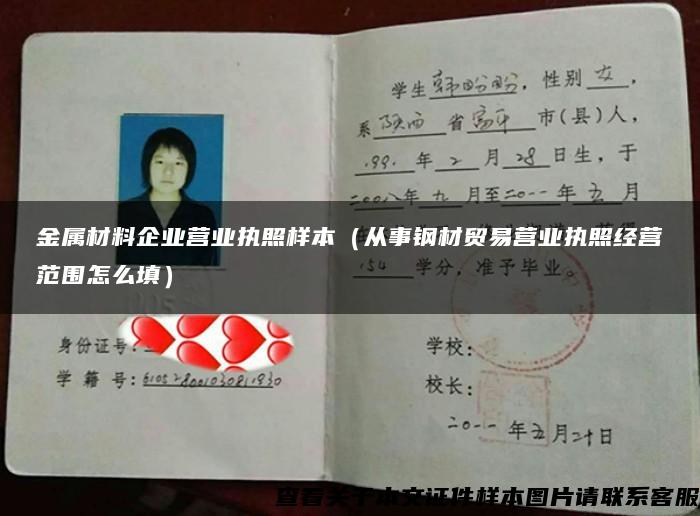 学生韩盼盼，性别女，
系陕西省富平市(县)人，
1991年2月28日生，于
二00八年九月至二0一一年五月
金属材料企业营业执照样本（从事钢材贸易营业执照经营
范围怎么填）
154学分，准予毕业。
身份证号：
学籍号：610528001030811930
学校：
校长：
二0一一年五月二十日
查看关于本文证件样本图片请联系客服